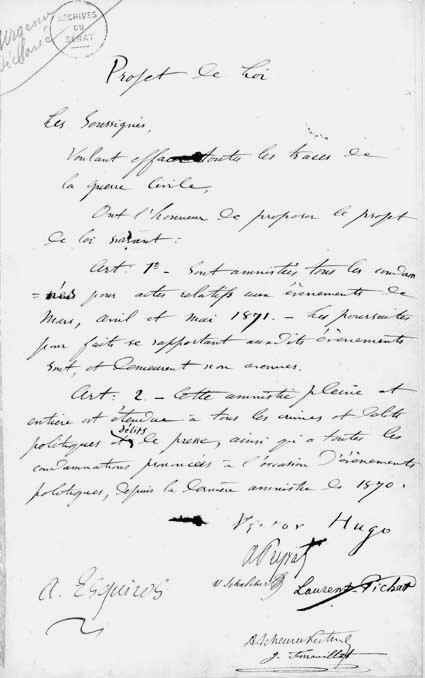 Urgence
déclarée
ARCHIVES
DU
SÉNAT
Projet de Loi
Les Soussignés,
Voulant effacer toutes les traces de
la guerre civile,
Ont l'honneur de proposer le projet
de loi suivant :
Art : 1er - Sont amnistiés tous les condam
= nés pour actes relatifs aux évènements de
Mars, avril et mai 1871. - Les poursuites
pour faits se rapportant auxdits évènements
sont, et demeurent non avenues.
Art : 2. - Cette amnistie pleine et
entière est étendue à tous les crimes et délits
politiques et délits de presse, ainsi qu'à toutes les
condamnations prononcées à l'occasion d'évènements
politiques, depuis la dernière amnistie de 1870.
Victor Hugo
A. Peyrat
V. Schoelcher Laurent-Pichat
A. Esquiros
A. Scheurer Kestner